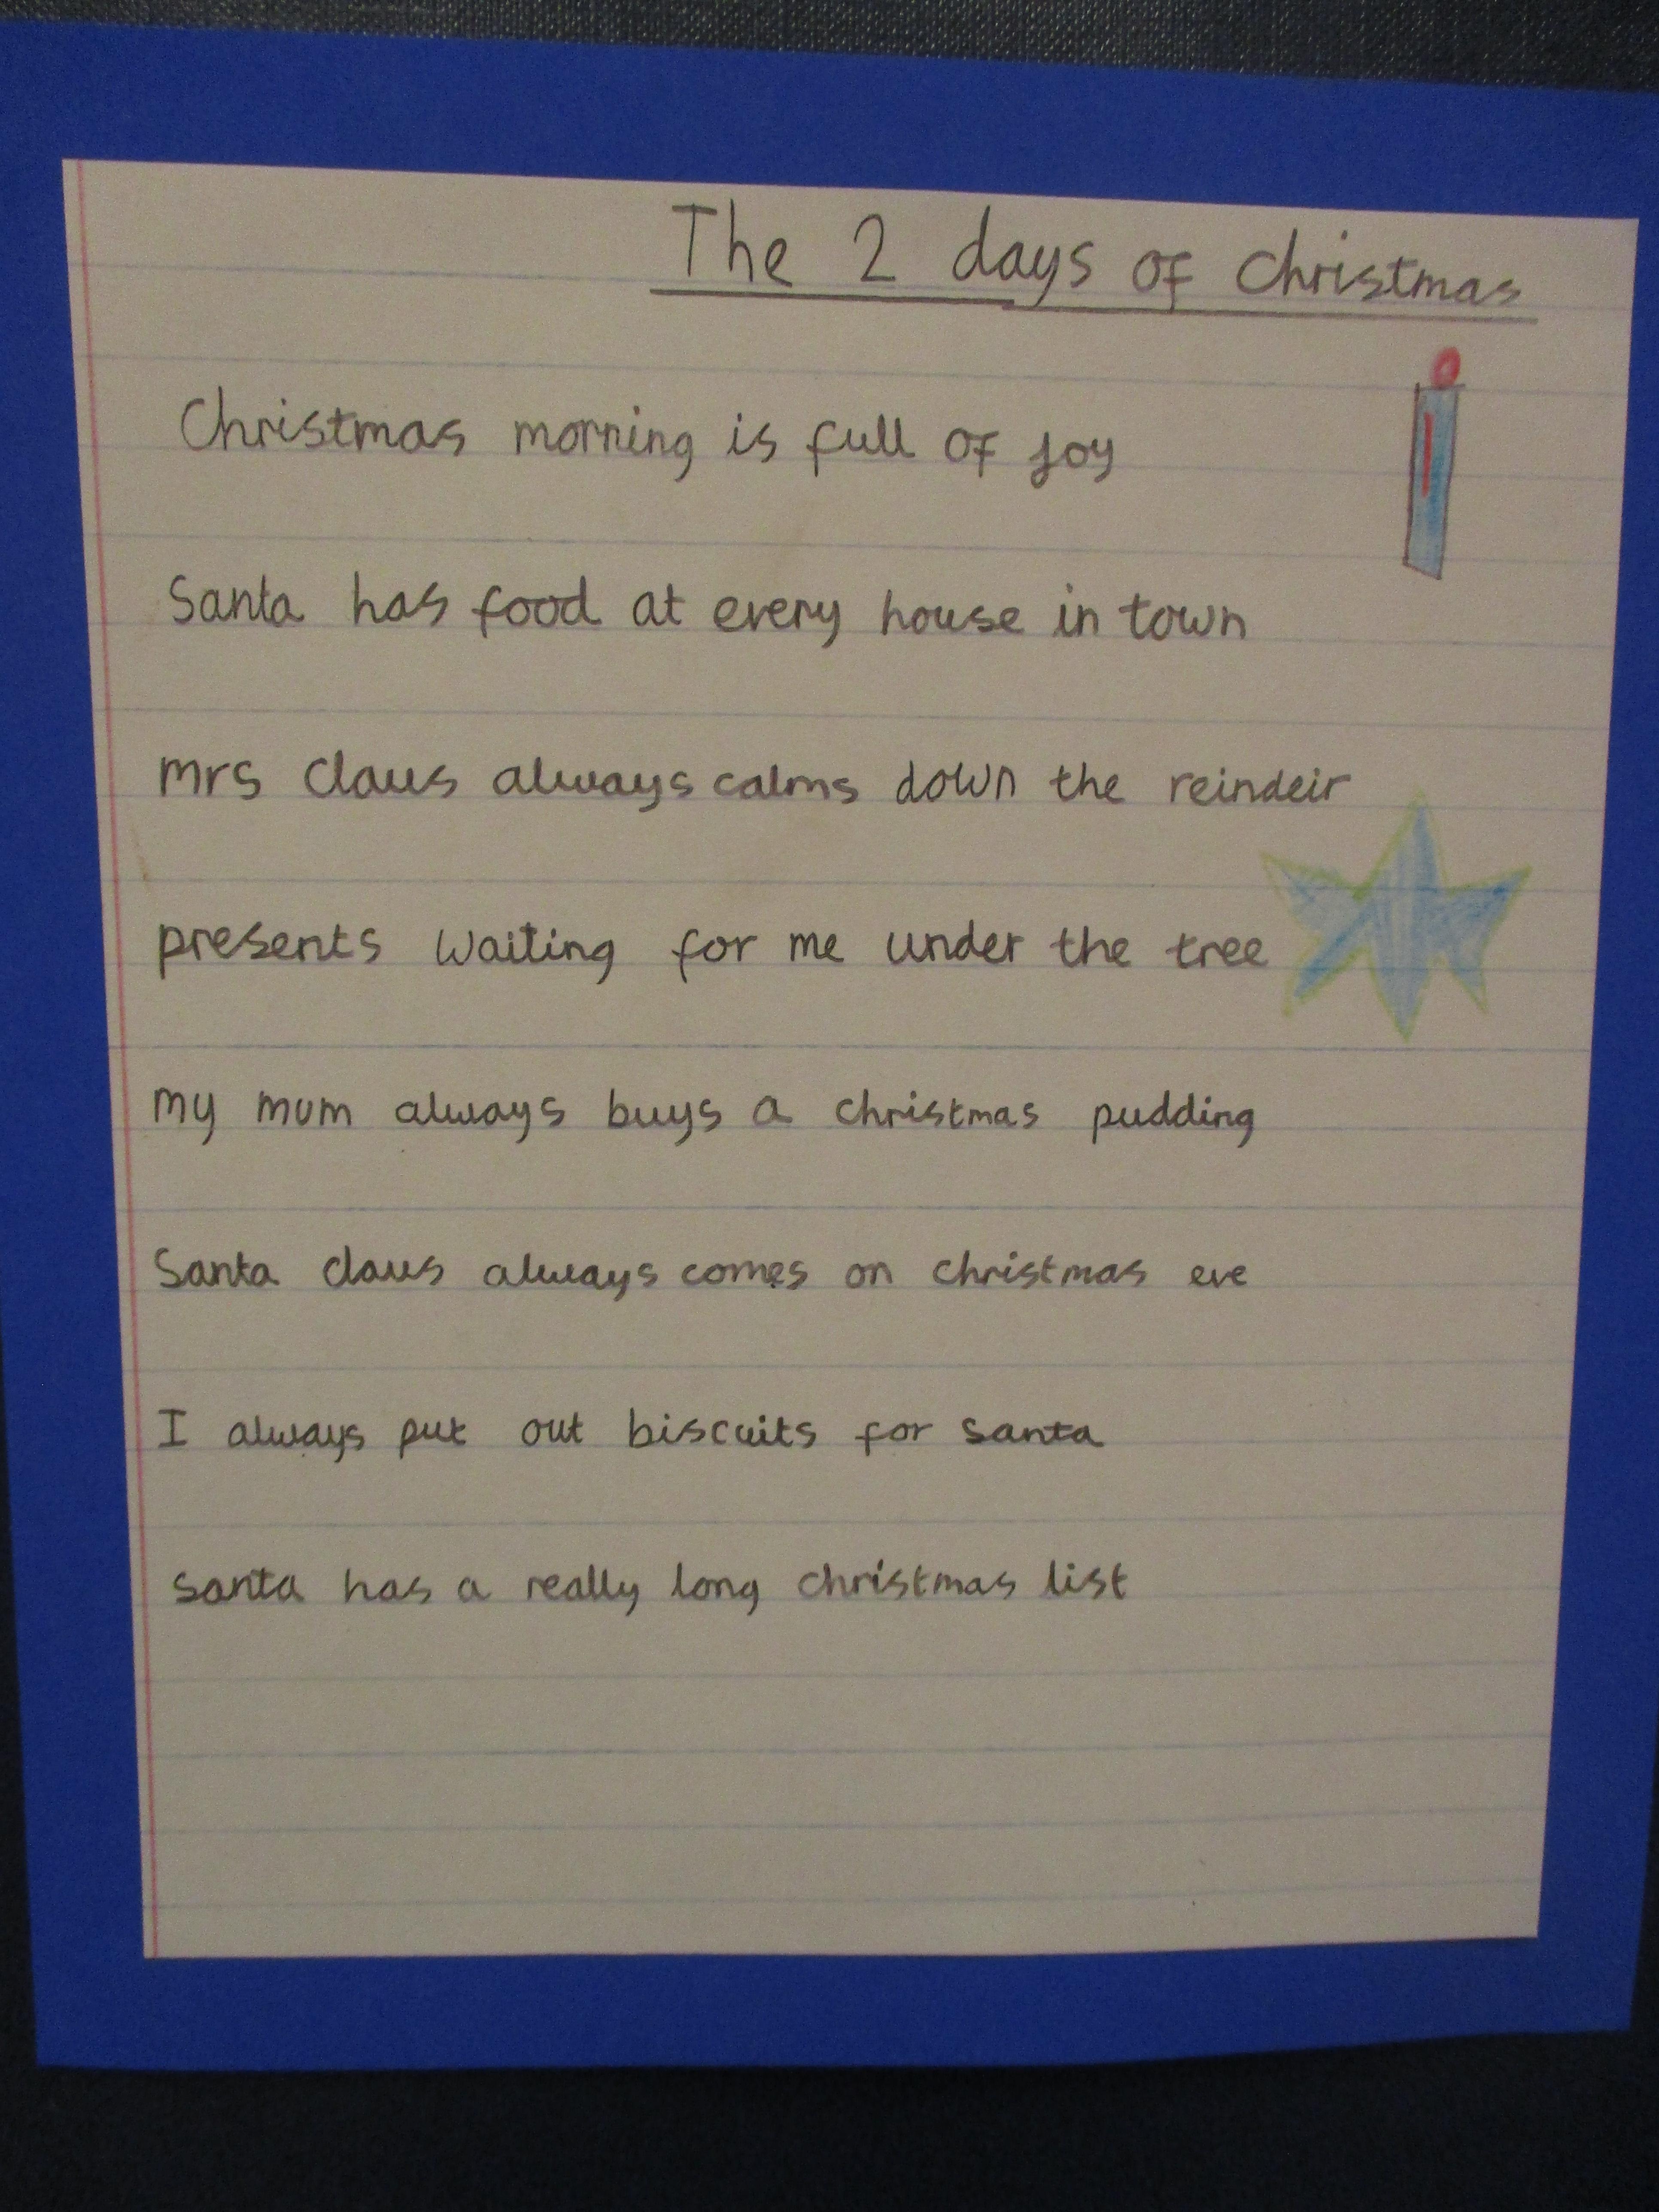 The 2 days of christmas
Christmas morning is full of joy
Santa has food at every house in town
mrs claus always calms down the reindeir
presents waiting for me under the tree
my mum always buys a christmas pudding
Santa claus always comes on christmas eve
I always put out biscuits for santa
santa has a really long christmas list